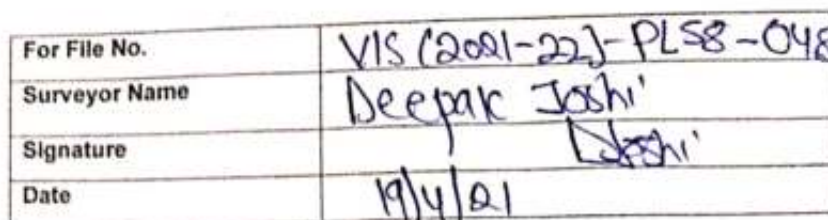 For File No. VIS (2021-22)-PL58-048
Surveyor Name Deepak Joshi
Signature DJoshi
Date 19/4/21